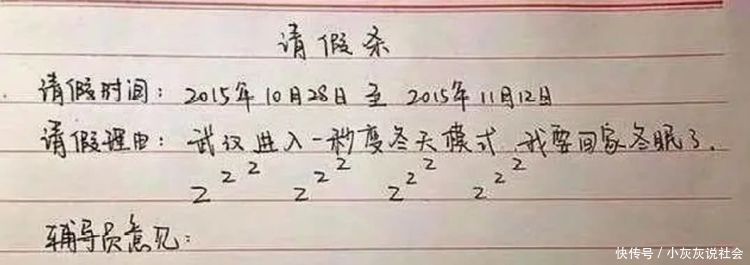 请假条
请假时间：2015年10月28日 至 2015年11月12日
请假理由：武汉进入一秒变冬天模式，我要回家冬眠了.
z z z z z z z z z z z z
辅导员意见：
快传号/小灰灰说社会